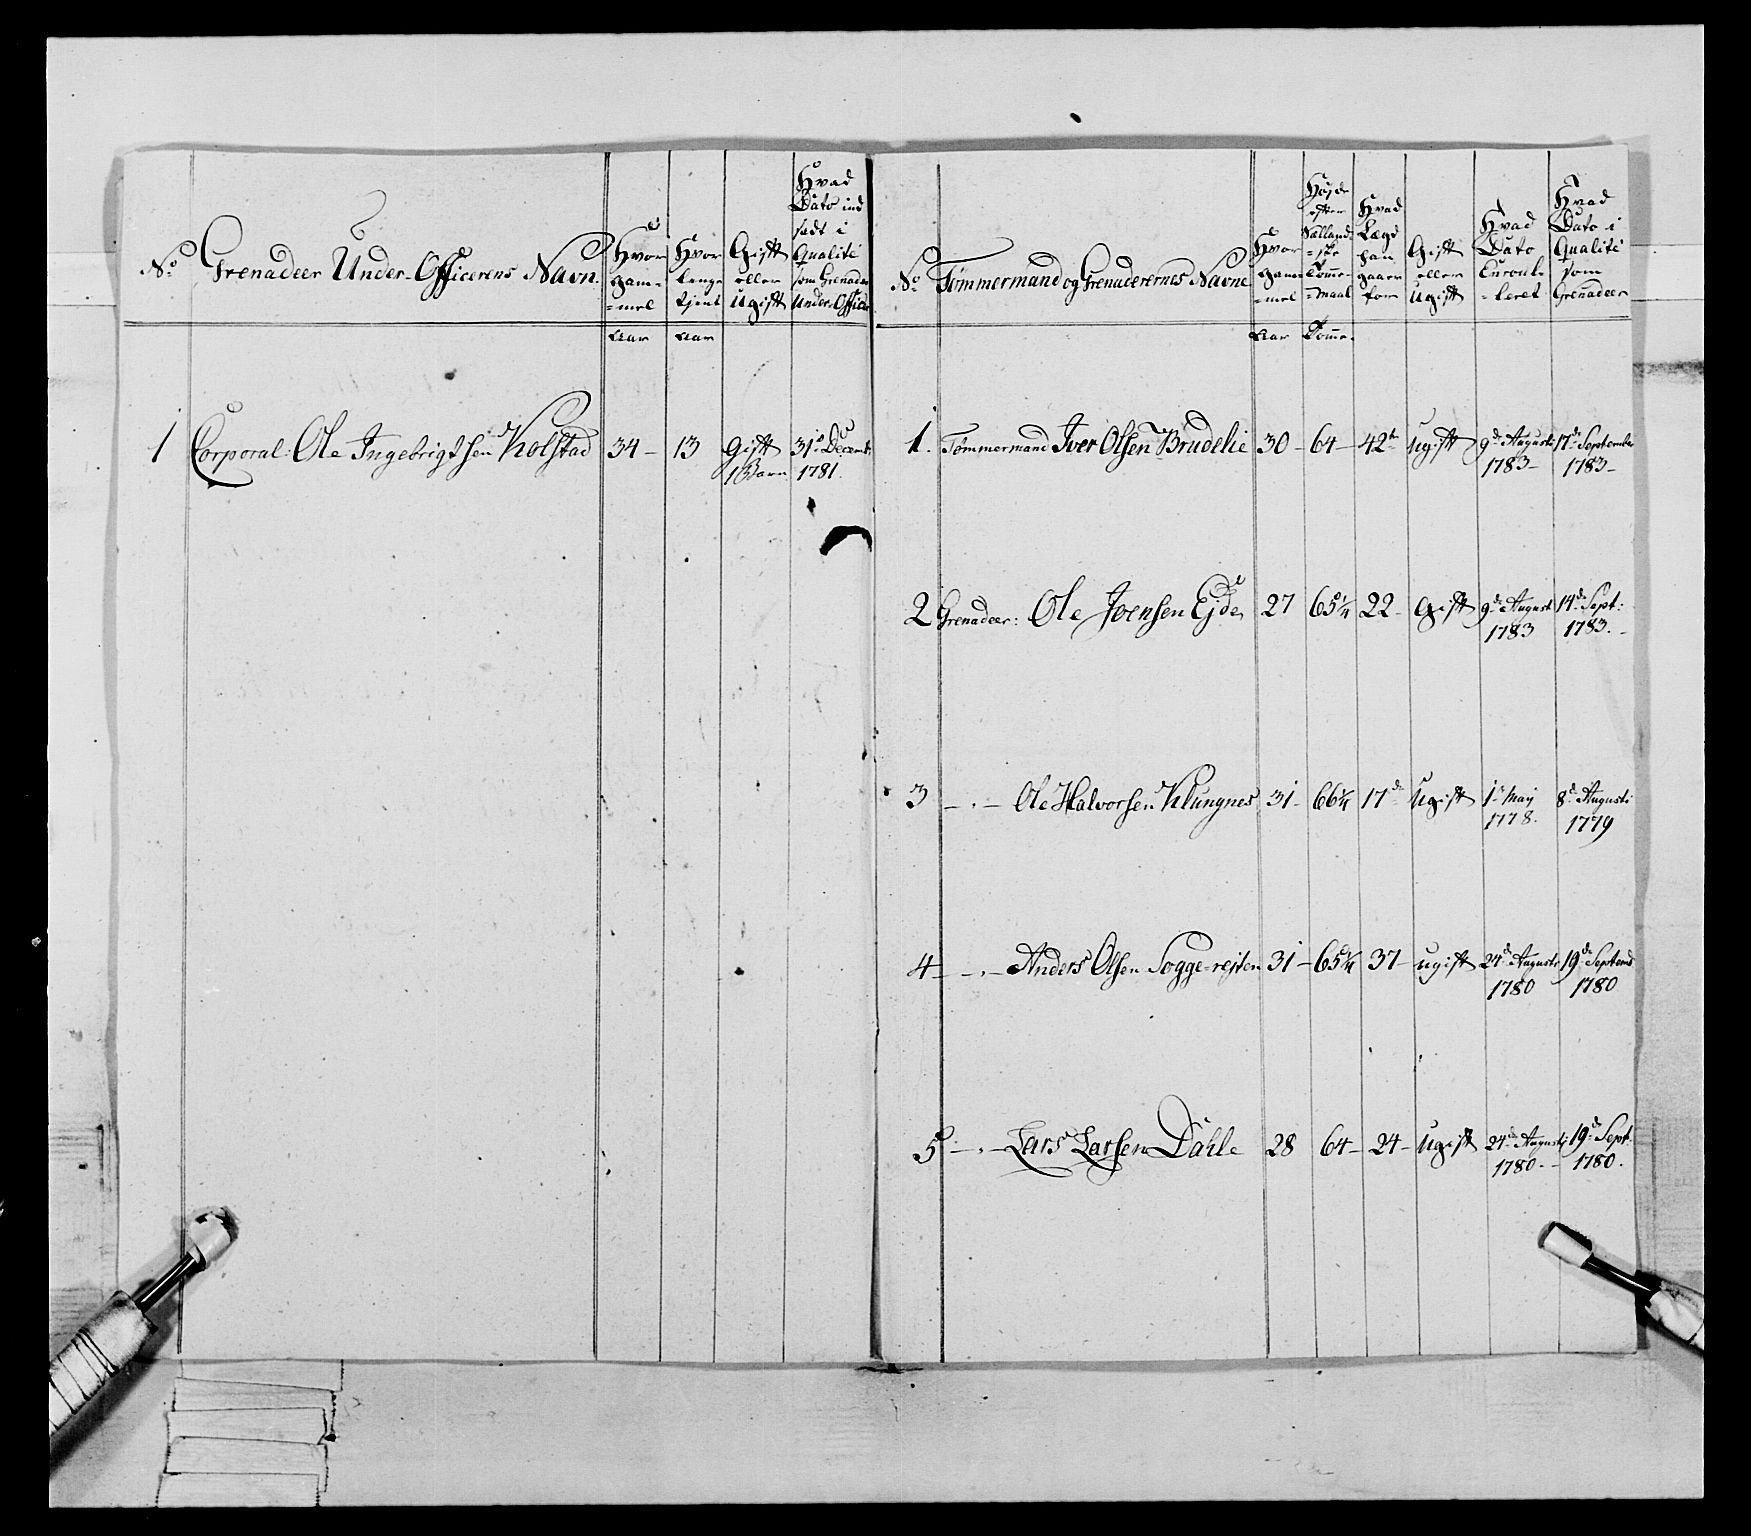 No
Grenadeer Under-Officerens Navn.
Hvor
gam-
=mel
Hvor
lenge
tjent
Gift
eller
Ugift
Hvad
Dato ind
sadt i
Qualité
som Grenadeer
Under-Officer
Aar
Aar
1
Corporal: Ole Ingebrigtsen Kolstad
34 –
13
Gift
1 Barn
31te Decemb:
1781.
No
Tømmermand og Grenaderernes Navne
Hvor
gam-
=mel
Højde
efter
Sælland-
=ske
Tomme-
=maal
Hvad
Lægd
han
gaaer
for
Gift
eller
Ugift
Hvad
Dato
Enroul-
=leret
Hvad
Dato i
Qualité
som
Grenadeer
Aar
Tomme.
1.
Tømmermand Iver Olsen Brudelie
30 –
64 –
42te
Ugift
9de Augusti
1783 –
17de September
1783 –
2
Grenadeer: Ole Joensen Ejde
27
65 1/4
22 –
Gift
9de Augusti
1783
14de Sept:
1783. –
3
– . – Ole Halvorsen Klungnes
31 –
66 1/4
17de
Ugift
1te Maij
1778.
8de Augusti
1779
4
– . – Anders Olsen Sogge-rejten
31 –
65 1/4
37 –
Ugift
24de Augusti
1780
19de Septemb
1780
5
– . – Lars Larsen Dahle
28
64 –
24 –
Ugift
24de Augusti
1780. –
19de Sept:
1780.